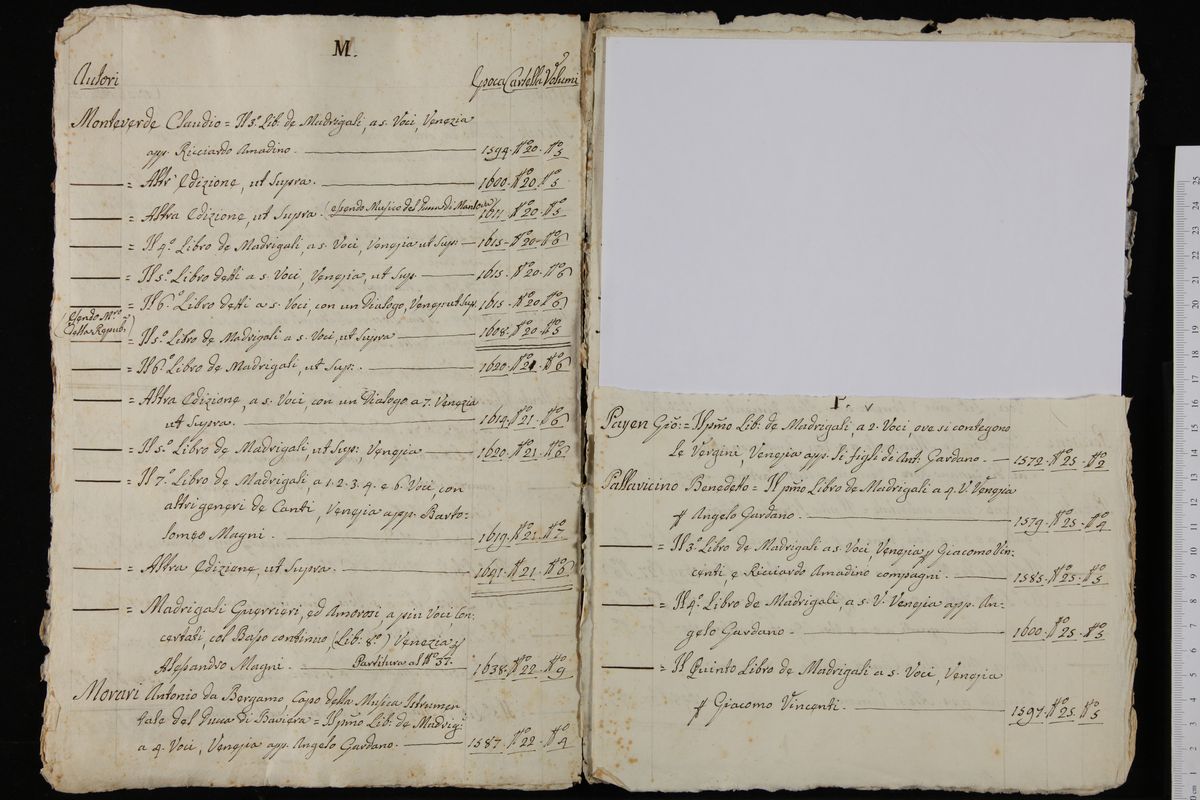 M.
Autori Epoca Cartelli Volumi
Monteverde Claudio = Il 3.º Lib. de Madrigali, a 5. Voci, Venezia
app. Ricciardo Amadino. 1594. Nº 20. Nº 5
= Altr' Edizione, ut supra. 1600. Nº 20. Nº 5
= Altra Edizione, ut supra. (essendo Musico del Duca di Mantova) 1611. Nº 20. Nº 5
= Il 4.º Libro de Madrigali, a 5. Voci, Venezia ut sup: 1615. Nº 20. Nº 6
= Il 5.º Libro detti a 5. Voci, Venezia, ut sup. 1615. Nº 20. Nº 6
= Il 6.º Libro detti a 5. Voci, con un Dialogo, Venez: ut sup. 1615. Nº 20. Nº 6
(essendo Mro
della Repub:)
= Il 5.º Libro de Madrigali a 5. Voci, ut supra 1608. Nº 20. Nº 5
= Il 6.º Libro de Madrigali, ut sup: 1620. Nº 21. Nº 6
= Altra Edizione, a 5. Voci, con un Dialogo a 7. Venezia
ut supra. 1614. Nº 21. Nº 6
= Il 5.º Libro de Madrigali, ut sup:, Venezia 1620. Nº 21. Nº 6
= Il 7.º Libro de Madrigali, a 1. 2. 3. 4. e 6. Voci, con
altri generi de Canti, Venezia app. Barto-
lomeo Magni. 1619. Nº 21. Nº
= Altra Edizione, ut supra. 1641. Nº 21. Nº 6
= Madrigali Guerrieri, ed Amorosi, a più Voci Con-
certati, col Basso continuo (Lib: 8.º) Venezia p
Alessandro Magni. Partitura al Nº 37. 1638. Nº 22. Nº 9
Morari Antonio da Bergamo, Capo della Musica Istrumen
tale del Duca di Baviera = Il pmo Lib: de Madrig:
a 4. Voci, Venezia app. Angelo Gardano. 1587. Nº 22. Nº 4
P.
Payen Gio: = Il pmo Lib: de Madrigali, a 2. Voci, ove si contegono
Le Vergini, Venezia app. li figli di Ant. Gardano. 1572. Nº 25. Nº 2
Pallavicino Benedetto = Il pmo Libro de Madrigali a 4. V. Venezia
p Angelo Gardano. 1579. Nº 25. Nº 4
= Il 3.º Libro de Madrigali a 5. Voci Venezia p Giacomo Vin-
centi e Ricciardo Amadino compagni. 1585. Nº 25. Nº 5
= Il 4.º Libro de Madrigali, a 5. V. Venezia app. An-
gelo Gardano. 1600. Nº 25. Nº 5
= Il Quinto Libro de Madrigali a 5. Voci, Venezia
p Giacomo Vincenti. 1597. Nº 25. Nº 5